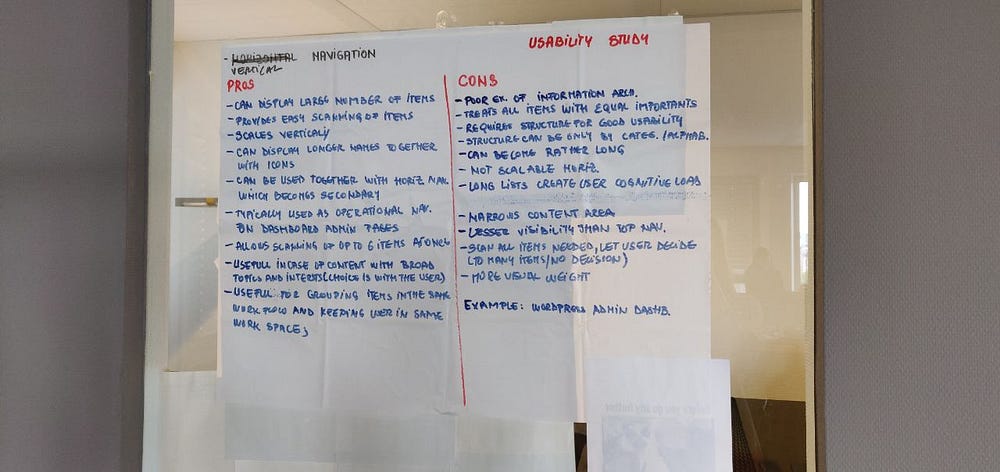 USABILITY STUDY
- HORIZONTAL NAVIGATION
VERTICAL
PROS
- CAN DISPLAY LARGE NUMBER OF ITEMS
- PROVIDES EASY SCANNING OF ITEMS
- SCALES VERTICALLY
- CAN DISPLAY LONGER NAMES TOGETHER
WITH ICONS
- CAN BE USED TOGETHER WITH HORIZ NAV.
WHICH BECOMES SECONDARY
- TYPICALLY USED AS OPERATIONAL NAV.
ON DASHBOARD ADMIN PAGES
- ALLOWS SCANNING OF UP TO 6 ITEMS AT ONCE
- USEFULL IN CASE OF CONTENT WITH BROAD
TOPICS AND INTERSTS (CHOICE IS WITH THE USER)
- USEFUL FOR GROUPING ITEMS IN THE SAME
WORK FLOW AND KEEPING USER IN SAME
WORK SPACE;
CONS
- POOR EX. OF INFORMATION ARCH.
- TREATS ALL ITEMS WITH EQUAL IMPORTANTS
- REQUIRES STRUCTURE FOR GOOD USABILITY
- STRUCTURE CAN BE ONLY BY CATEG. /ALPHAB.
- CAN BECOME RATHER LONG
- NOT SCALABLE HORIZ.
- LONG LISTS CREATE USER COGNITIVE LOAD
- NARROWS CONTENT AREA
- LESSER VISIBILITY THAN TOP NAV.
- SCAN ALL ITEMS NEEDED, LET USER DECIDE
(TO MANY ITEMS/NO DECISION)
- MORE VISUAL WEIGHT
EXAMPLE: WORDPRESS ADMIN DASHB.